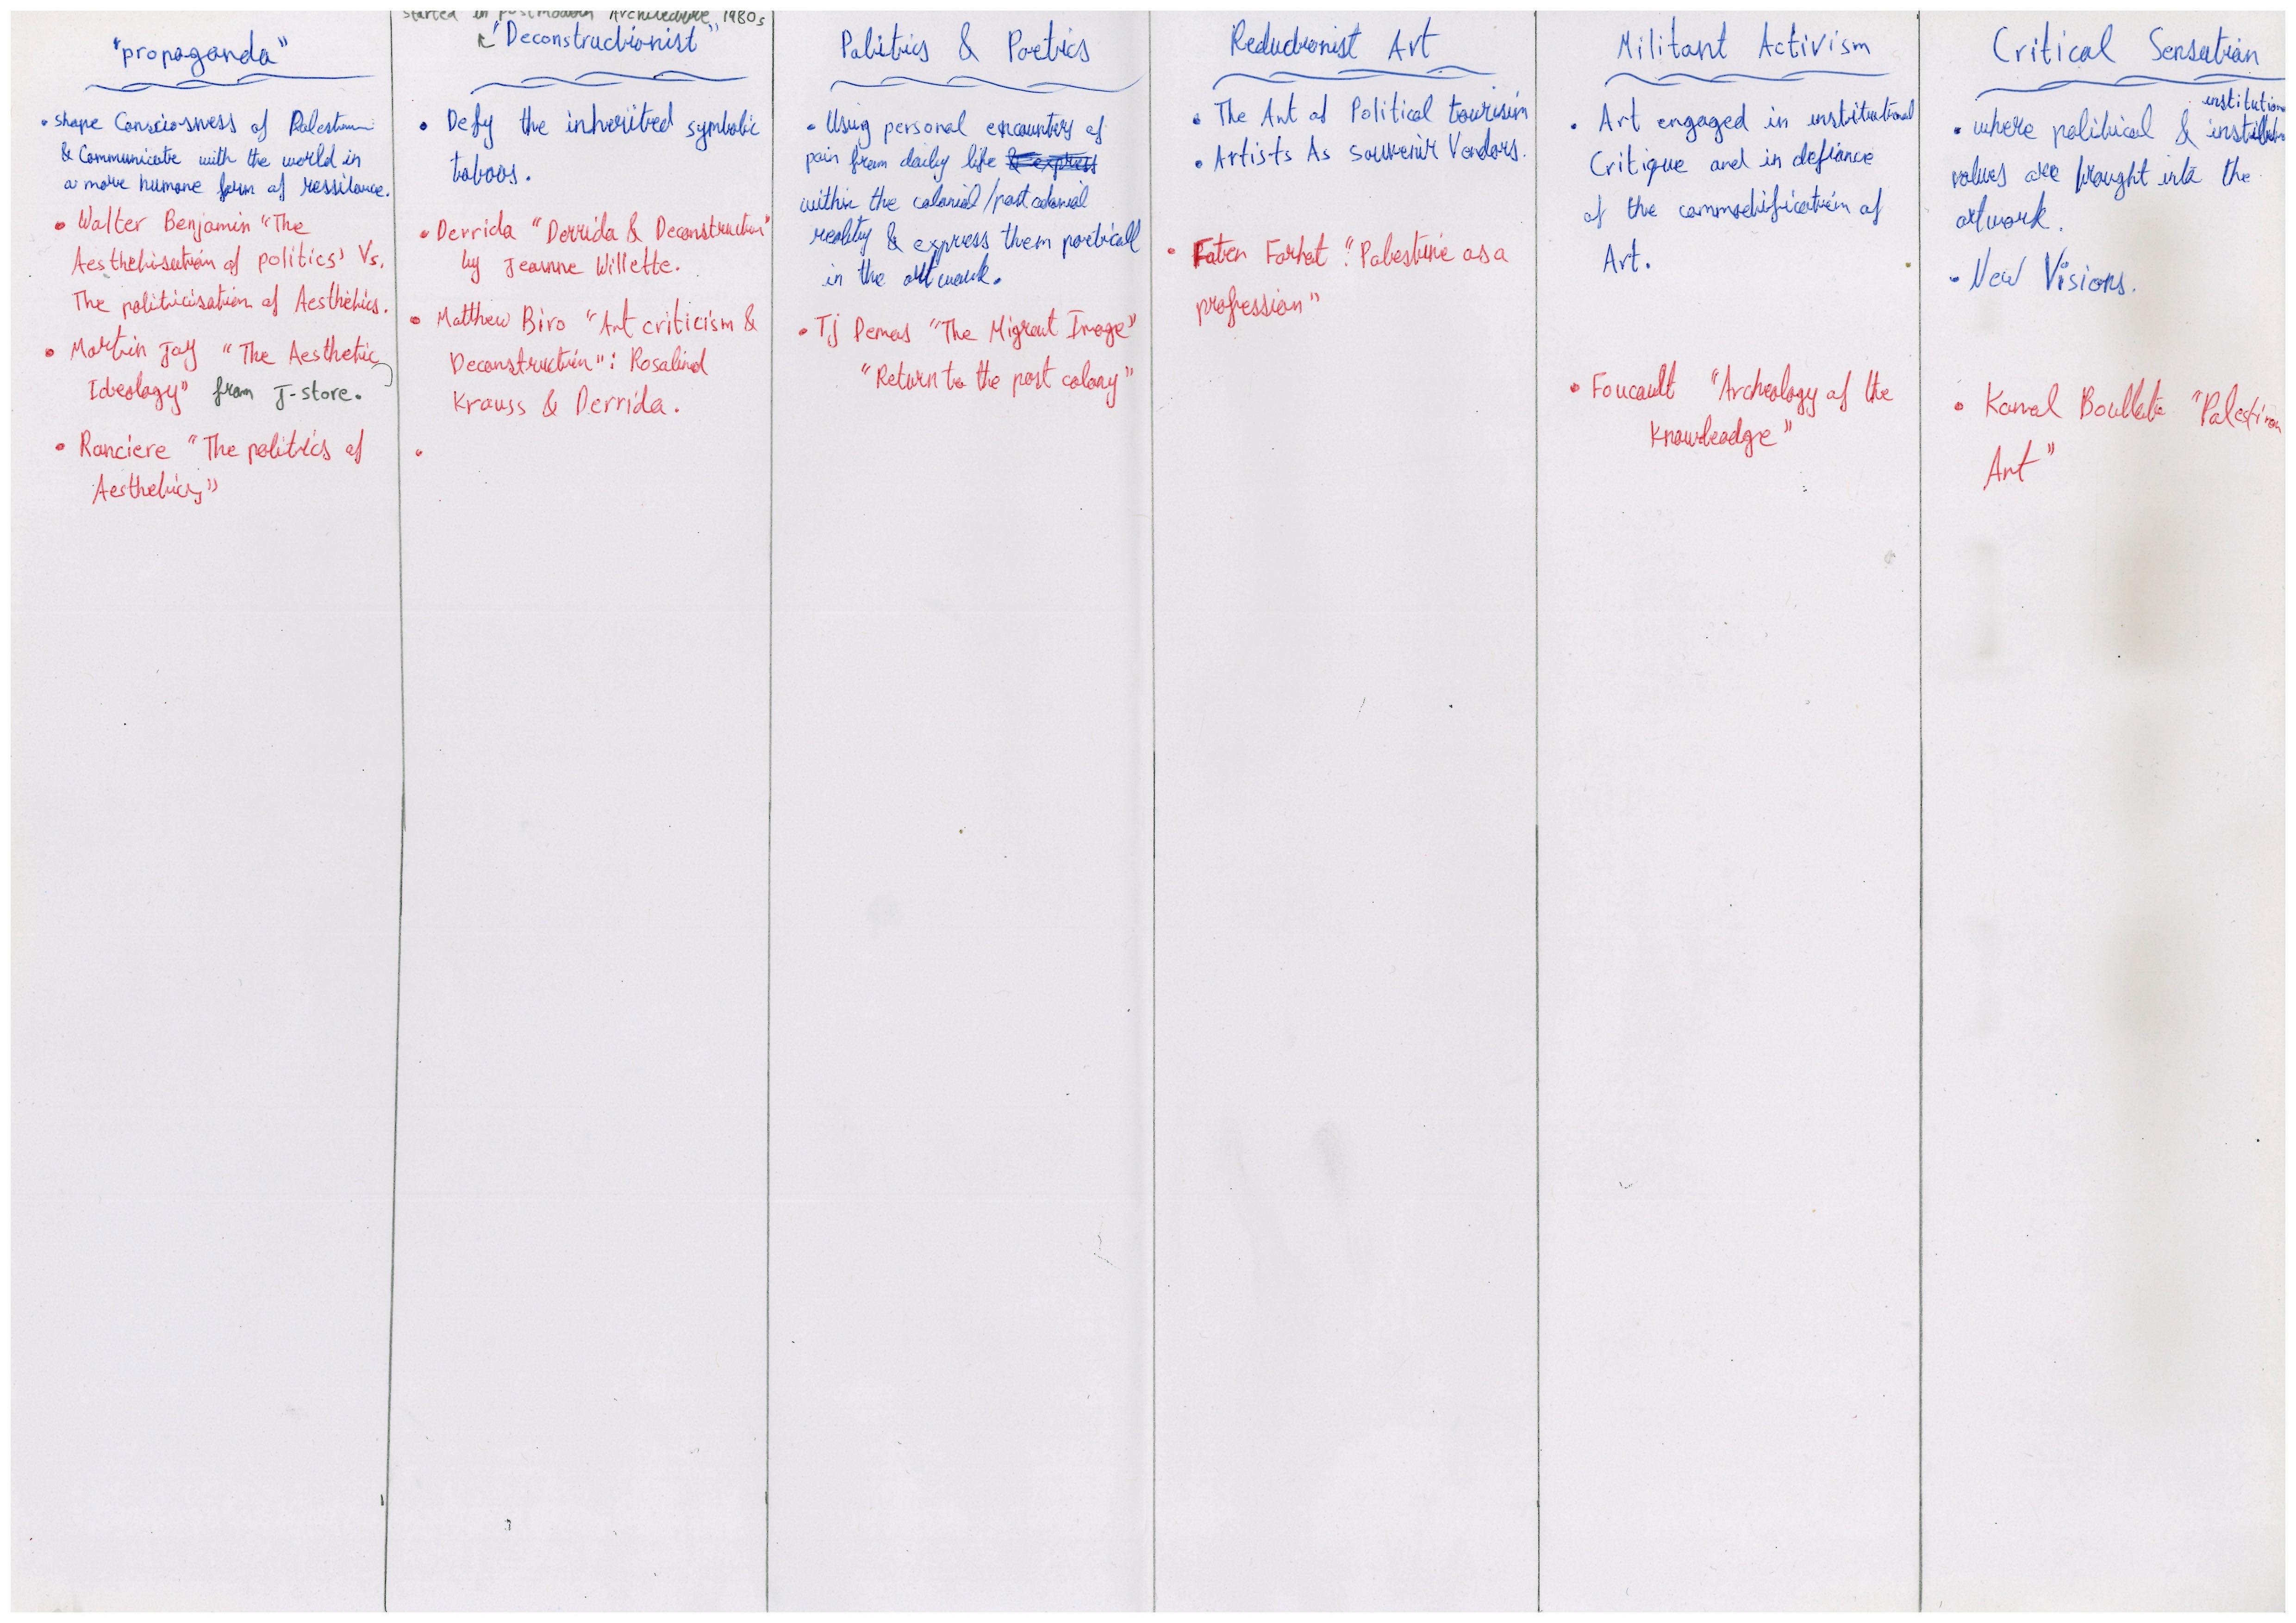 "propaganda"
• shape Consciosness of
& Communicate with the world in
a more humane form of ressitance.
• Walter Benjamin "The
Aesthetisation of politics" Vs.
The politicisation of Aesthetics.
• Martin Jay "The Aesthetic
Ideology" from J-store.
• Ranciere "The politics of
Aesthetics"
started in postmodern Architecture 1980s
"Deconstructionist"
• Defy the inherited symbolic
taboos.
• Derrida "Derrida & Deconstruction"
by Jeanne Willette.
• Matthew Biro "Art criticism &
Deconstruction": Rosalind
Krauss & Derrida.
•
Politics & Poetics
• Using personal encounters of
pain from daily life & express
within the colonial/post colonial
reality & express them poeticall
in the artwork.
• Tj Demos "The Migrant Image"
"Return to the post colony"
Reductionist Art
• The Art of Political tourism
• Artists As souvenir Vendors.
• Faten Farhat "Palestine as a
profession"
Militant Activism
• Art engaged in institutional
Critique and in defiance
of the commodification of
Art.
• Foucault "Archeology of the
Knowleadge"
Critical Sensation
institution
• where political &
values are brought into the
artwork.
• New Visions.
• Kamal Boullata "Palestinian
Art"